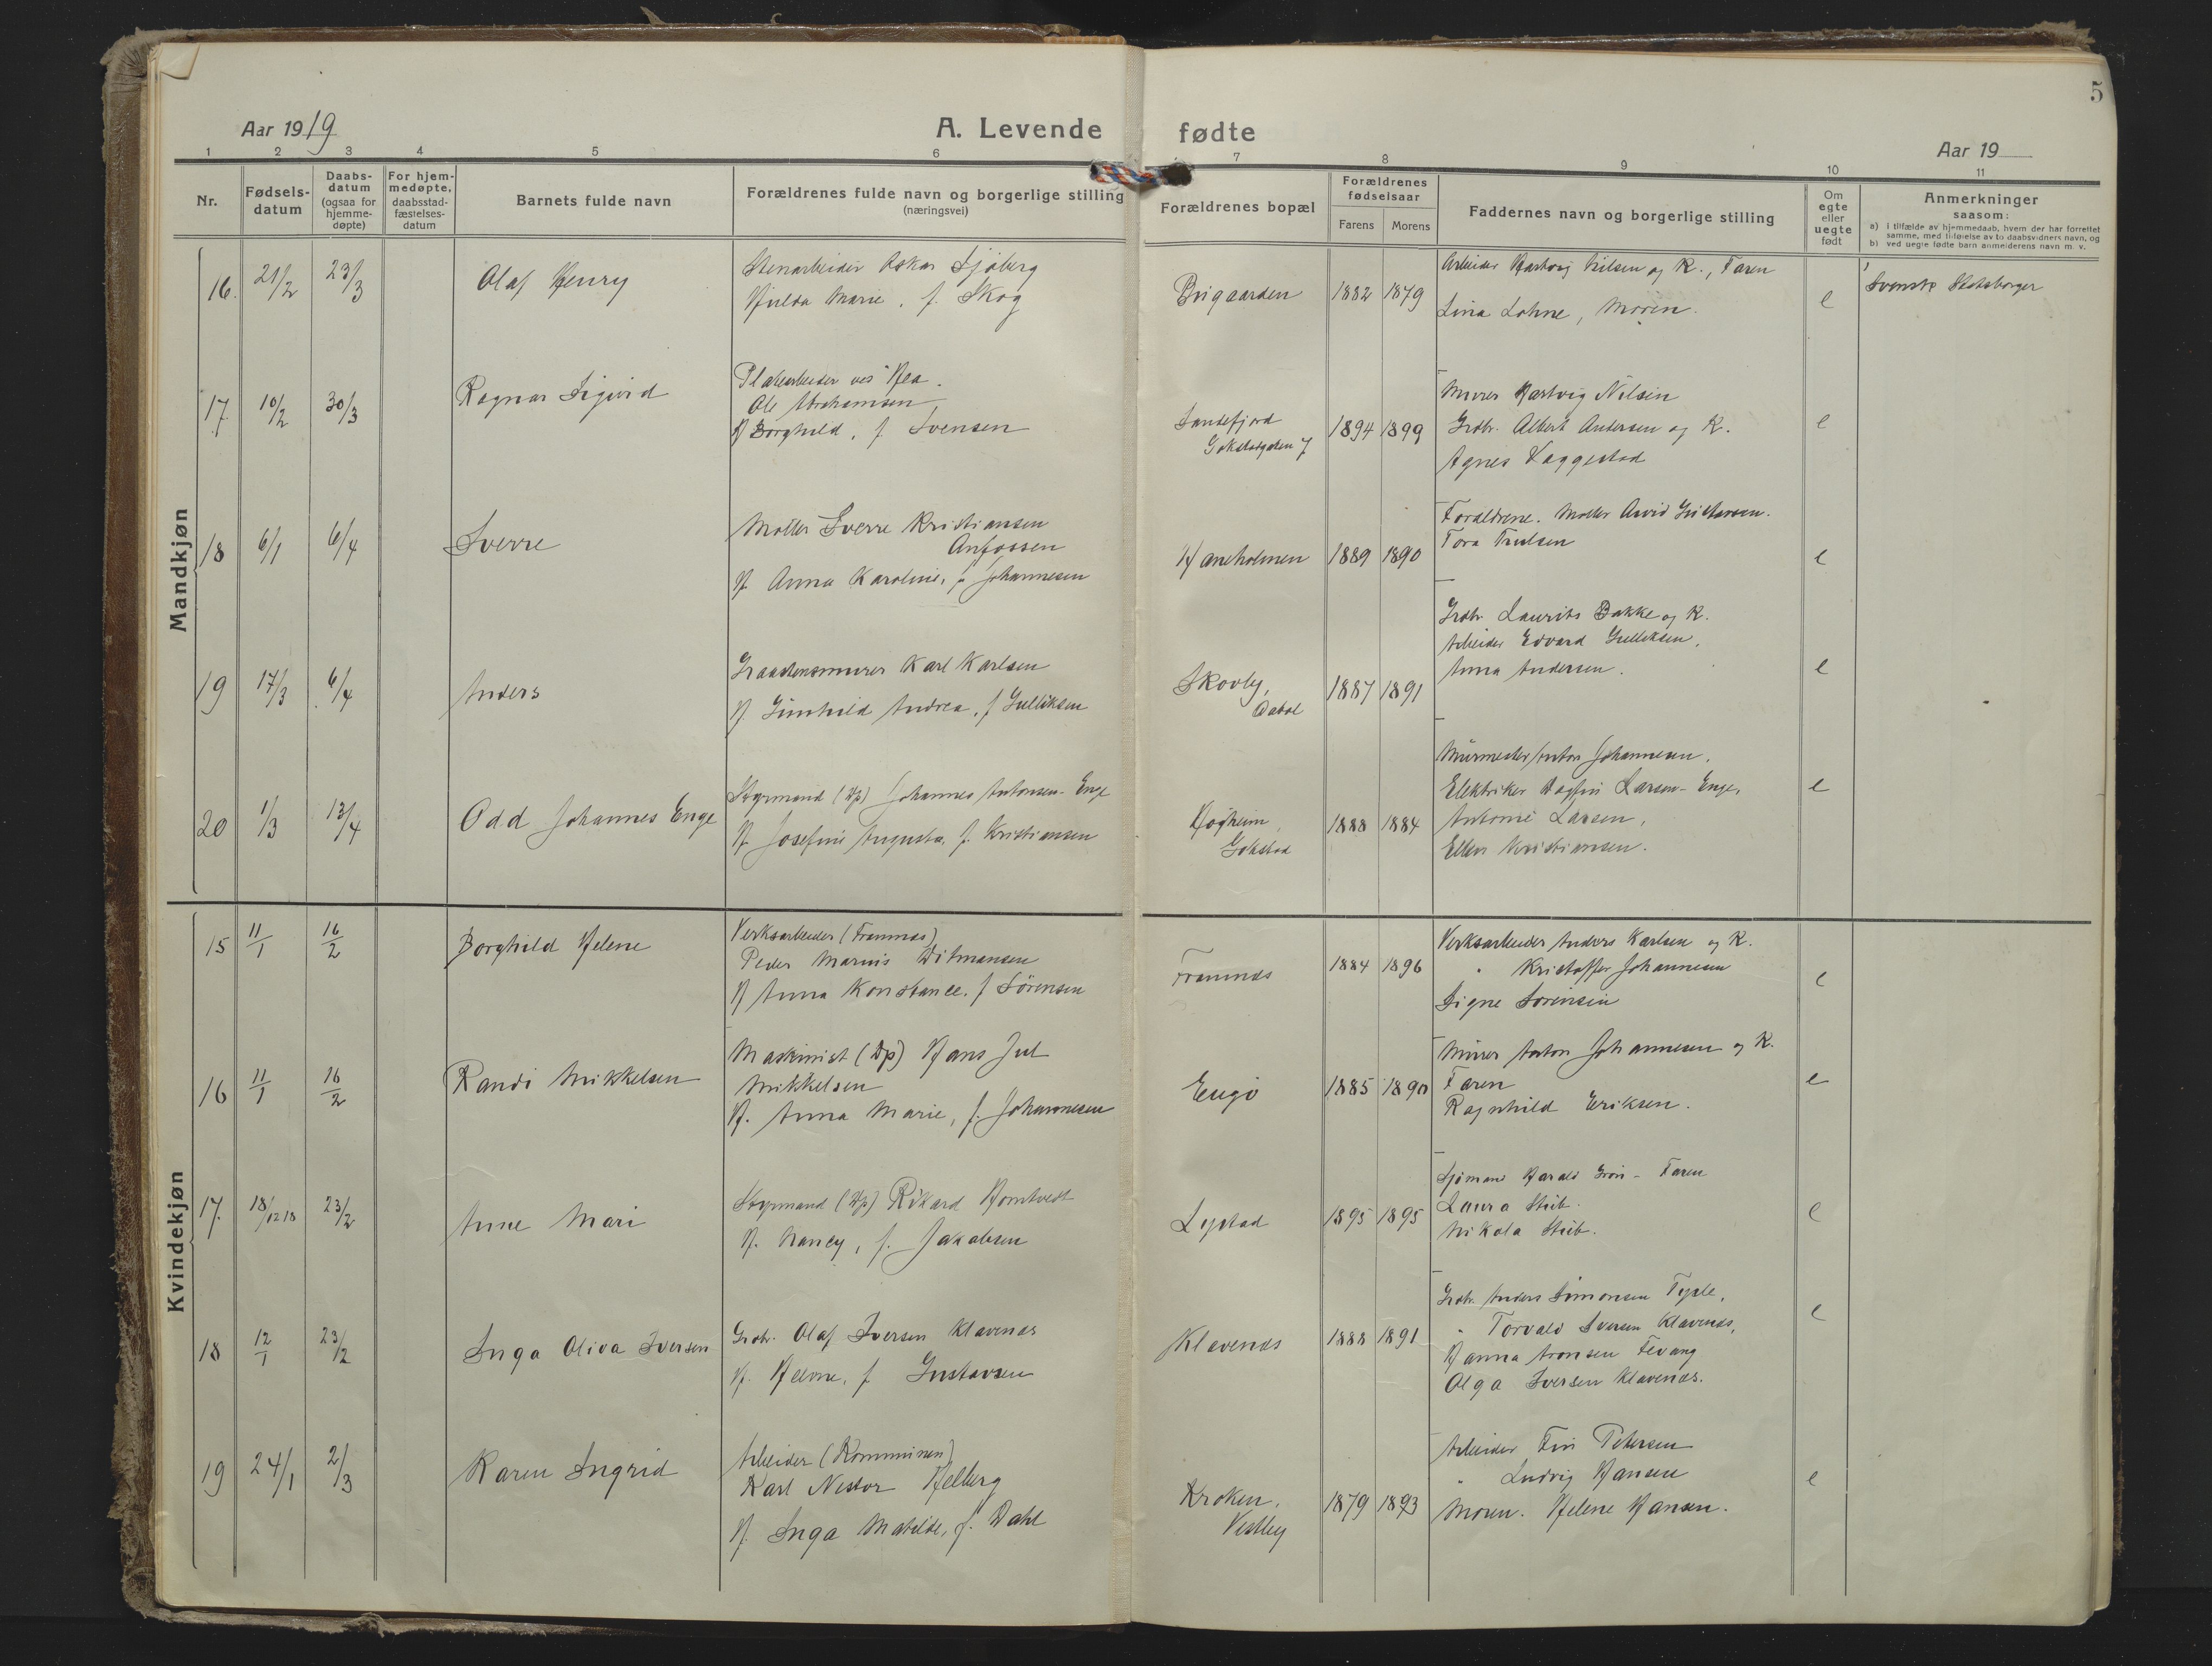 5
Aar 1919
A. Levende fødte
Aar 19
1 2 3 4 5 6 7 8 9 10 11
Nr.
Fødsels-
datum
Daabs-
datum
(ogsaa for
hjemme-
døpte)
For hjem-
medøpte,
daabsstad-
fæstelses-
datum
Barnets fulde navn
Forældrenes fulde navn og borgerlige stilling
(næringsvei)
Forældrenes bopæl
Forældrenes
fødselsaar
Farens Morens
Faddernes navn og borgerlige stilling
Om
egte
eller
uegte
født
Anmerkninger
saasom:
a) i tilfælde av hjemmedaab, hvem der har forrettet
samme, med tilføielse av to daabsvidners navn, og
b) ved uegte fødte barn anmelderens navn m. v.
Mandkjøn
16. 21/2 23/3
Olaf Henry
Stenarbeider Oskar Sjöberg
Hulda Marie, f. Skog
Brigaarden
1882 1879
Arbeider Hartvig Nilsen og K., Faren
Lina Lohne, Moren.
e
Svensk Statsborger
17 10/2 30/3
Ragnar Sigurd
Platearbeider
Ole Abrahamsen
H Borghild, f. Svensen
Sandefjord
Gokstadgaten 7
1894 1899
Murer Hartvig Nilsen
Grdbr. Albert Andersen og K.
Agnes Haggestad
e
18 6/1 6/4
Sverre
Matles Sverre Kristiansen
Anfossen
H. Anna Karoline, f. Johannesen
Haneholmen
1889 1890
Foraldrene. Matles Arvid Gustavsen.
Tora Trulsen
e
19 17/3 6/4
Anders
Graastensmurer Karl Karlsen
H. Gunhild Andrea, f. Gulliksen
Skovly,
1887 1891
Grdbr. Laurits Bakke og K.
Arbeider Edvard Gulliksen,
Anna Andersen.
e
20 1/3 13/4
Odd Johannes Enge
Styrmand (Dp) Johannes Antonsen-Enge
H. Josefine Augusta, f. Kristiansen
Høgheim,
Gokstad
1888 1884
Murmester Anton Johannesen,
Elektriker Dagfin Larsen-Enge,
Antonie Larsen,
Ellen Kristiansen.
e
Kvindekjøn
15 11/1 16/2
Borghild Helene
Verksarbeider (Framnæs)
Peder Marius Ditmansen
H Anna Konstance, f Sörensen
Framnæs
1884 1896
Verksarbeider Anders Karlsen og K.
" Kristoffer Johannesen
Signe Sörensen
e
16 11/1 16/2
Randi Mikkelsen
Maskinist (Dp) Hans Jul
Mikkelsen
H. Anna Marie, f. Johannesen
Eugö
1885 1890
Murer Anton Johannesen og K.
Faren
Ragnhild Eriksen.
e
17. 18/12 18 23/2
Anne Mari
Styrmand (Dp) Rikard Homtvedt
H. Nancy, f. Jakobsen
Lystad
1895 1895
Sjömand Harald Grön - Faren
Laura Stub.
Nikola Stub.
e
18 12/1 23/2
Inga Oliva Iversen
Grdbr. Olaf Iversen Klavenæs
H. Helene, f Gustavsen
Klavenæs
1888 1891
Grdbr. Anders Simonsen
" Torvald Iversen Klavenæs,
Hanna Aronsen Fevang
Olga Iversen Klavenæs.
e
19 24/1 2/3
Karen Ingrid
Arbeider (Kommunen)
Karl Nestor Helberg
H. Inga Matilde, f. Dahl
Kroken,
Vestby
1879 1893
Arbeider Finn Petersen
" Ludvig Hansen
Moren. Helene Hansen.
e